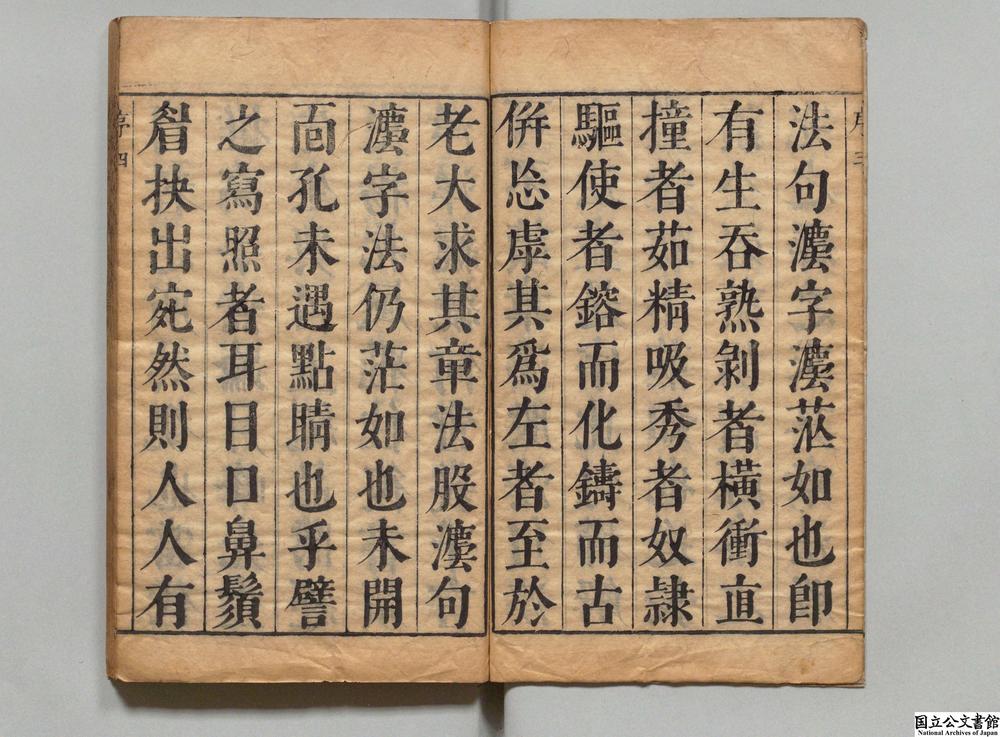 序三
法句灋字灋茫如也卽
有生吞熟剝者橫衝直
撞者茹精吸秀者奴隷
驅使者鎔而化鑄而古
倂㤀虖其爲左者至於
老大求其章法股灋句
灋字法仍茫如也未開
面孔未遇點睛也乎譬
之寫照者耳目口鼻鬚
眉抉出宛然則人人有
序四
国立公文書館
National Archives of Japan